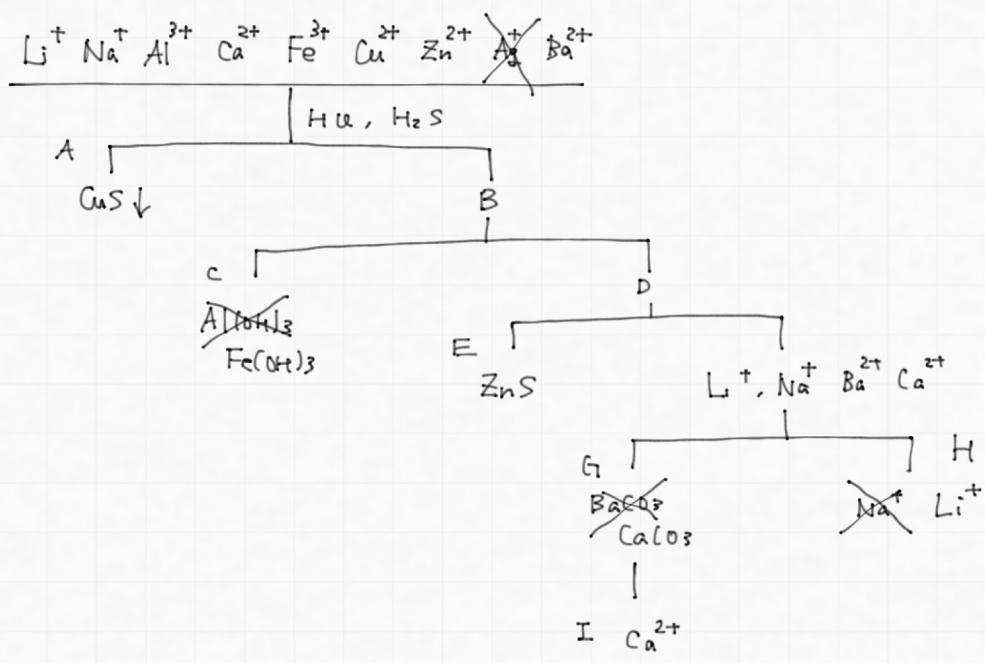 Li⁺ Na⁺ Al³⁺ Ca²⁺ Fe³⁺ Cu²⁺ Zn²⁺ Ag⁺ Ba²⁺
HCl, H₂S
A
CuS ↓
B
C
Al(OH)₃
Fe(OH)₃
D
E
ZnS
Li⁺, Na⁺ Ba²⁺ Ca²⁺
G
BaCO₃
CaCO₃
H
Na⁺ Li⁺
I Ca²⁺